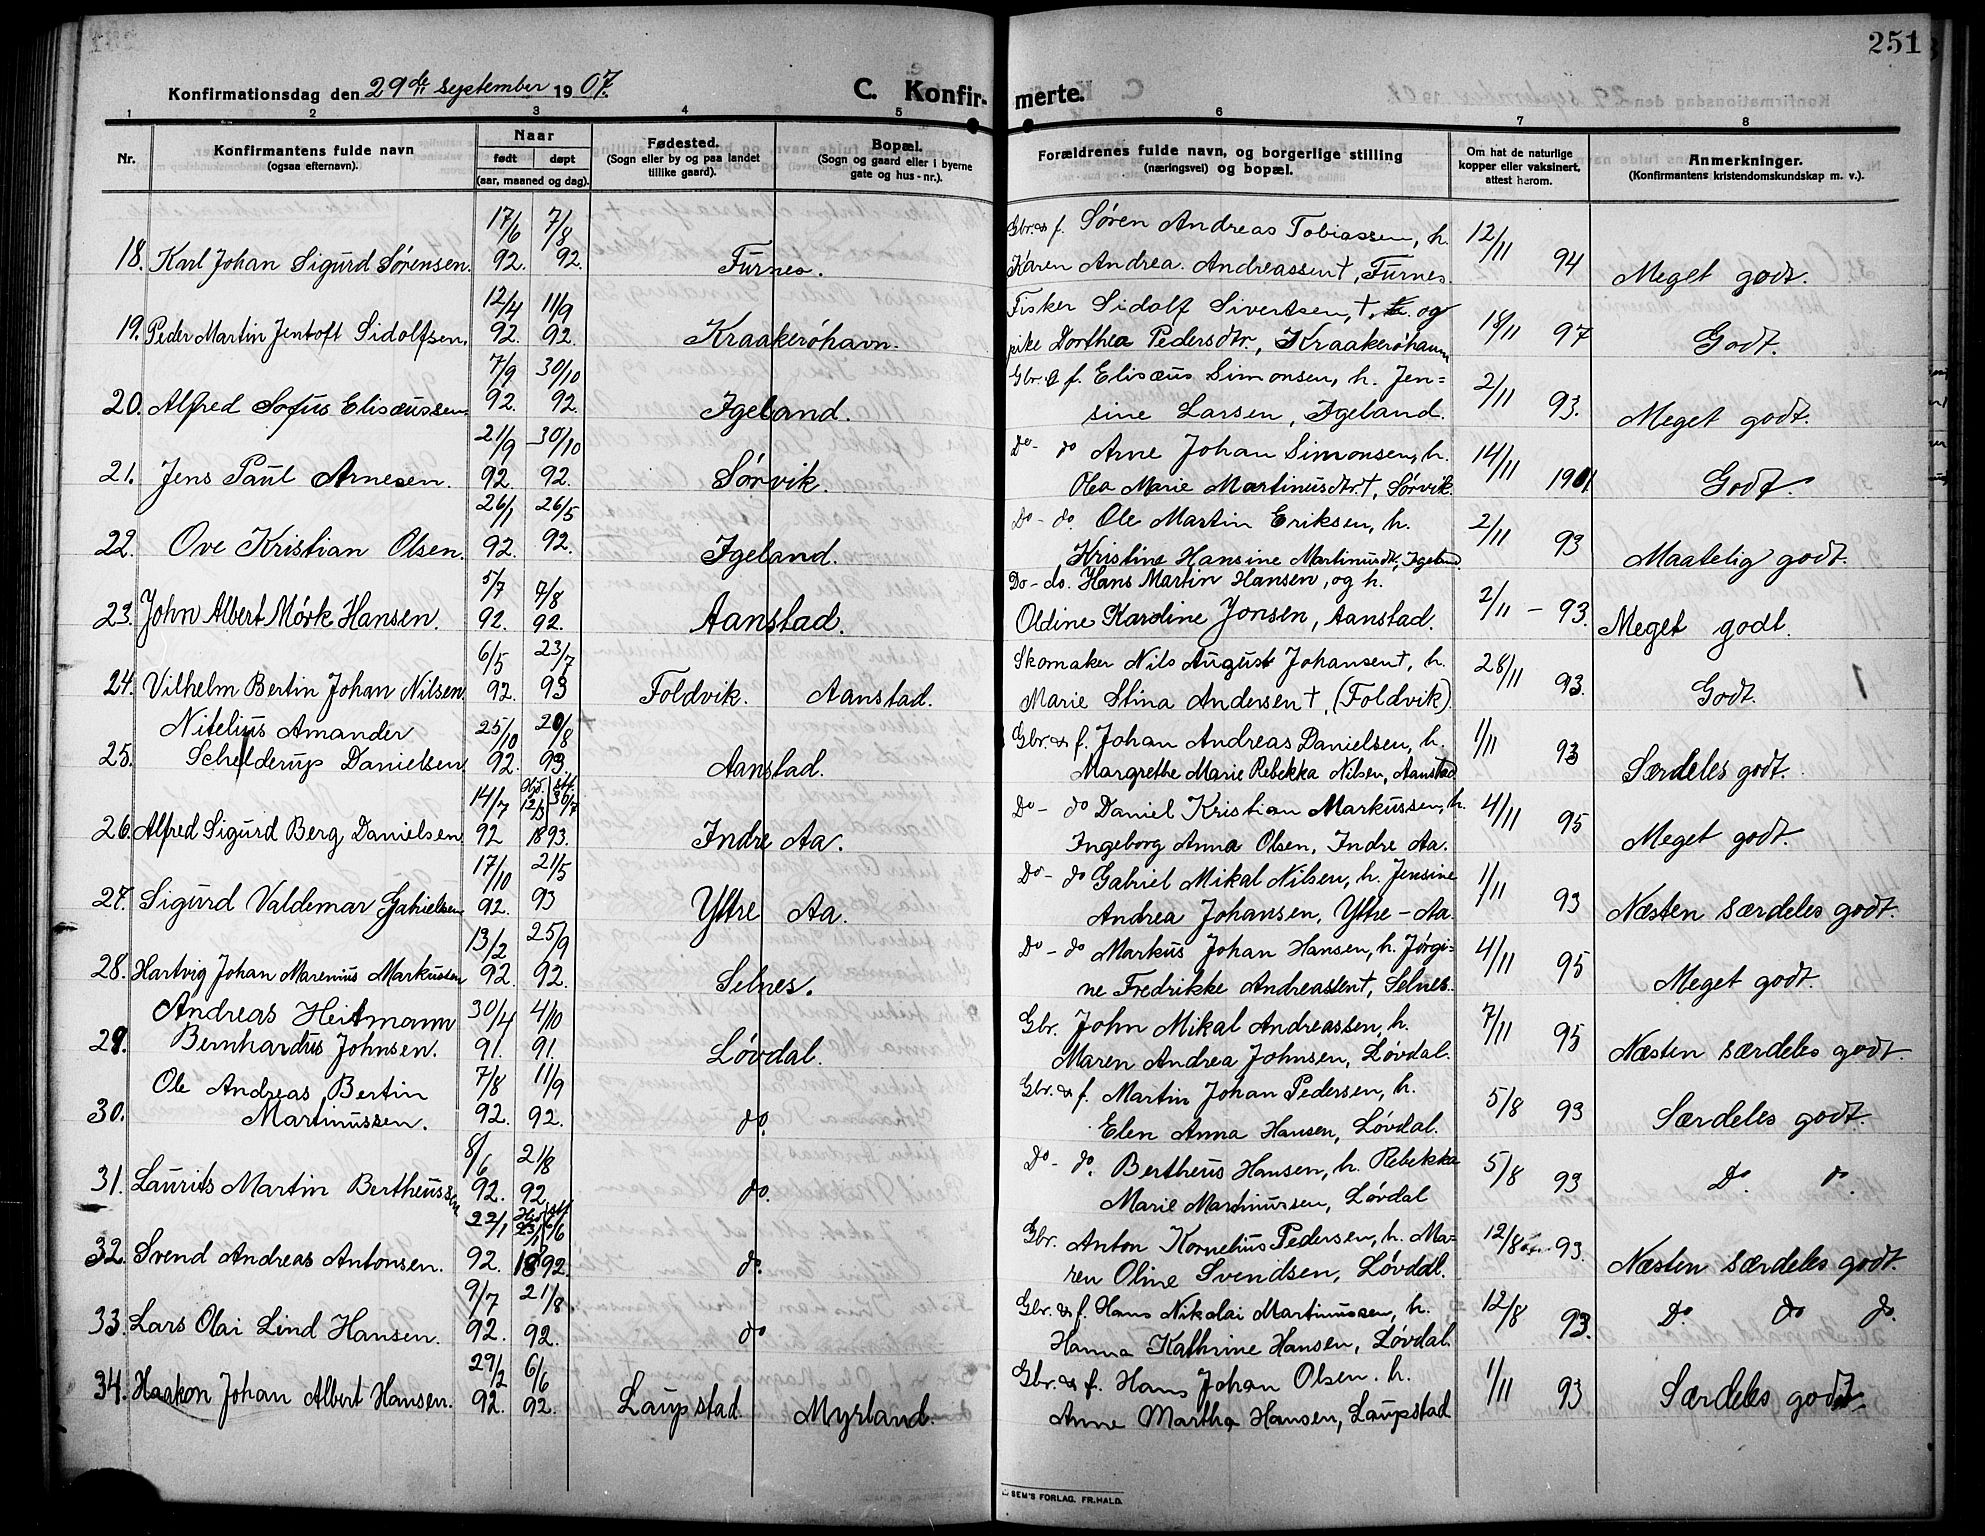 251
Konfirmationsdag den 29de september 1907.
C. Konfirmerte.
1 2 3 4 5 6 7 8
Nr.
Konfirmantens fulde navn
(ogsaa efternavn).
Naar
født døpt
(aar, maaned og dag).
Fødested.
(Sogn eller by og paa landet
tillike gaard).
Bopæl.
(Sogn og gaard eller i byerne
gate og hus-nr.).
Forældrenes fulde navn, og borgerlige stilling
(næringsvei) og bopæl.
Om hat de naturlige
kopper eller vaksinert,
attest herom.
Anmerkninger.
(Konfirmantens kristendomskundskap m. v.).
17/6 7/8 Gbr. & f. Søren Andreas Tobiassen, h. 12/11
18. Karl Johan Sigurd Sørensen. 92. 92. Furnes. Karen Andrea Andreassen †, Furnes. 94 Meget godt.
12/4 11/9 Fisker Sidolf Sivertsen, †, og 18/11
19. Peder Martin Jentoft Sidolfsen. 92. 92. Kraakerøhavn. pike Dorthea Pedersdtr., Kraakerøhavn 97 Godt.
7/9 30/10 Gbr. & f. Elisæus Simonsen, h. Jen= 2/11
20. Alfred Sofus Elisæussen. 92. 92. Igeland. sine Larsen, Igeland. 93. Meget godt.
21/9 30/10 Do - do Arne Johan Simonsen, h. 14/11
21. Jens Paul Arnesen. 92. 92. Sørvik. Olea Marie Martinusdtr. †, Sørvik. 1901. Godt.
26/1 26/5 Do - do. Ole Martin Eriksen, h. 2/11
22. Ove Kristian Olsen. 92. 92. Igeland. Kristine Hansine Martinusdt., Igeland. 93 Maatelig godt.
5/7 7/8 Do - do. Hans Martin Hansen, og h. 2/11 -
23. John Albert Mörk Hansen. 92. 92. Aanstad. Oldine Karoline Jonsen, Aanstad. 93. Meget godt.
6/5 23/7 Skomaker Nils August Johansen †, h. 28/11
24. Vilhelm Bertin Johan Nilsen. 92. 93 Foldvik. Aanstad. Marie Stina Andersen †, (Foldvik) 93. Godt. 1
Nitelius Amander 25/10 20/8 Gbr. & f. Johan Andreas Danielsen, h. 1/11
25. Schelderup Danielsen. 92. 93. Aanstad. Margrethe Marie Rebekka Nilsen, Aanstad 93 Særdeles godt.
14/7 12/3 30/7 Do - do Daniel Kristian Markussen, h. 4/11
26. Alfred Sigurd Berg Danielsen 92 1893. Indre Aa. Ingeborg Anna Olsen, Indre Aa. 95 Meget godt.
17/10 21/5 Do - do Gabriel Mikal Nilsen, h. Jensine 1/11
27. Sigurd Valdemar Gabrielsen 92. 93 Yttre Aa. Andrea Johansen, Yttre-Aa. 93 Næsten særdeles godt.
13/2 25/9 Do - do Markus Johan Hansen, h. Jørgi= 4/11
28. Hartvig Johan Marenius Markussen 92. 92. Selnes. ne Fredrikke Andreassen †, Selnes. 95 Meget godt.
Andreas Heitmann 30/4 4/10 Gbr. John Mikal Andreassen, h. 7/11
29. Bernhardus Johnsen. 91. 91. Løvdal. Maren Andrea Johnsen, Løvdal. 95 Næsten særdeles godt
Ole Andreas Bertin 7/8 11/9 Gbr. & f. Martin Johan Pedersen, h. 5/8
30. Martinussen. 92. 92. do. Elen Anna Hansen, Løvdal. 93 Særdeles godt.
8/6 21/8 Do - do. Bertheus Hansen, h. Rebekka 5/8
31. Laurits Martin Bertheussen 92. 92 do. Marie Martinussen, Løvdal 93 Do. do.
22/1 23/1 6/6 Gbr. Anton Kornelius Pedersen, h. Ma- 12/8
32. Svend Andreas Antonsen. 92. 1892. do. ren Oline Svendsen, Løvdal. 93. Næsten særdeles godt.
9/7 21/8 Gbr. & f. Hans Nikolai Martinussen, h. 12/8
33. Lars Olai Lind Hansen. 92. 92. do Hanna Kathrine Hansen, Løvdal. 93. Do. do do.
29/2 6/6 Gbr. & f. Hans Johan Olsen. h. 1/11
34. Haakon Johan Albert Hansen. 92. 92. Laupstad. Myrland. Anne Martha Hansen, Laupstad 93 Særdeles godt
SEM'S FORLAG. FR.HALD.